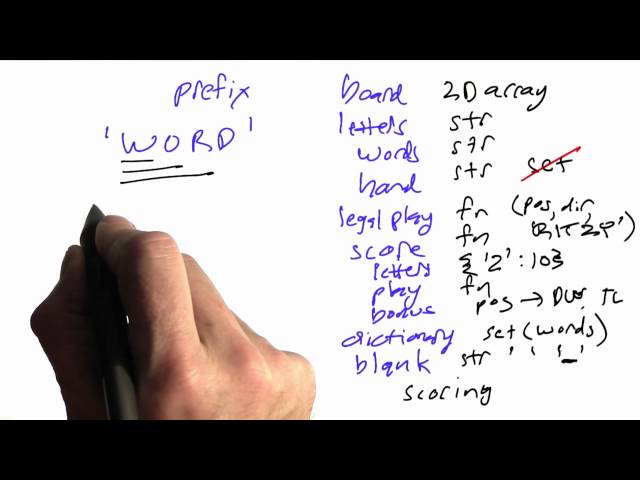 prefix
'WORD'
board 2D array
letters str
words str
hand str set
legal play fn (pos, dir,
score fn 'BITZP')
letters {'Z':10}
play fn
bonus pos → DW, TL
dictionary set(words)
blank str ' ' '_'
scoring